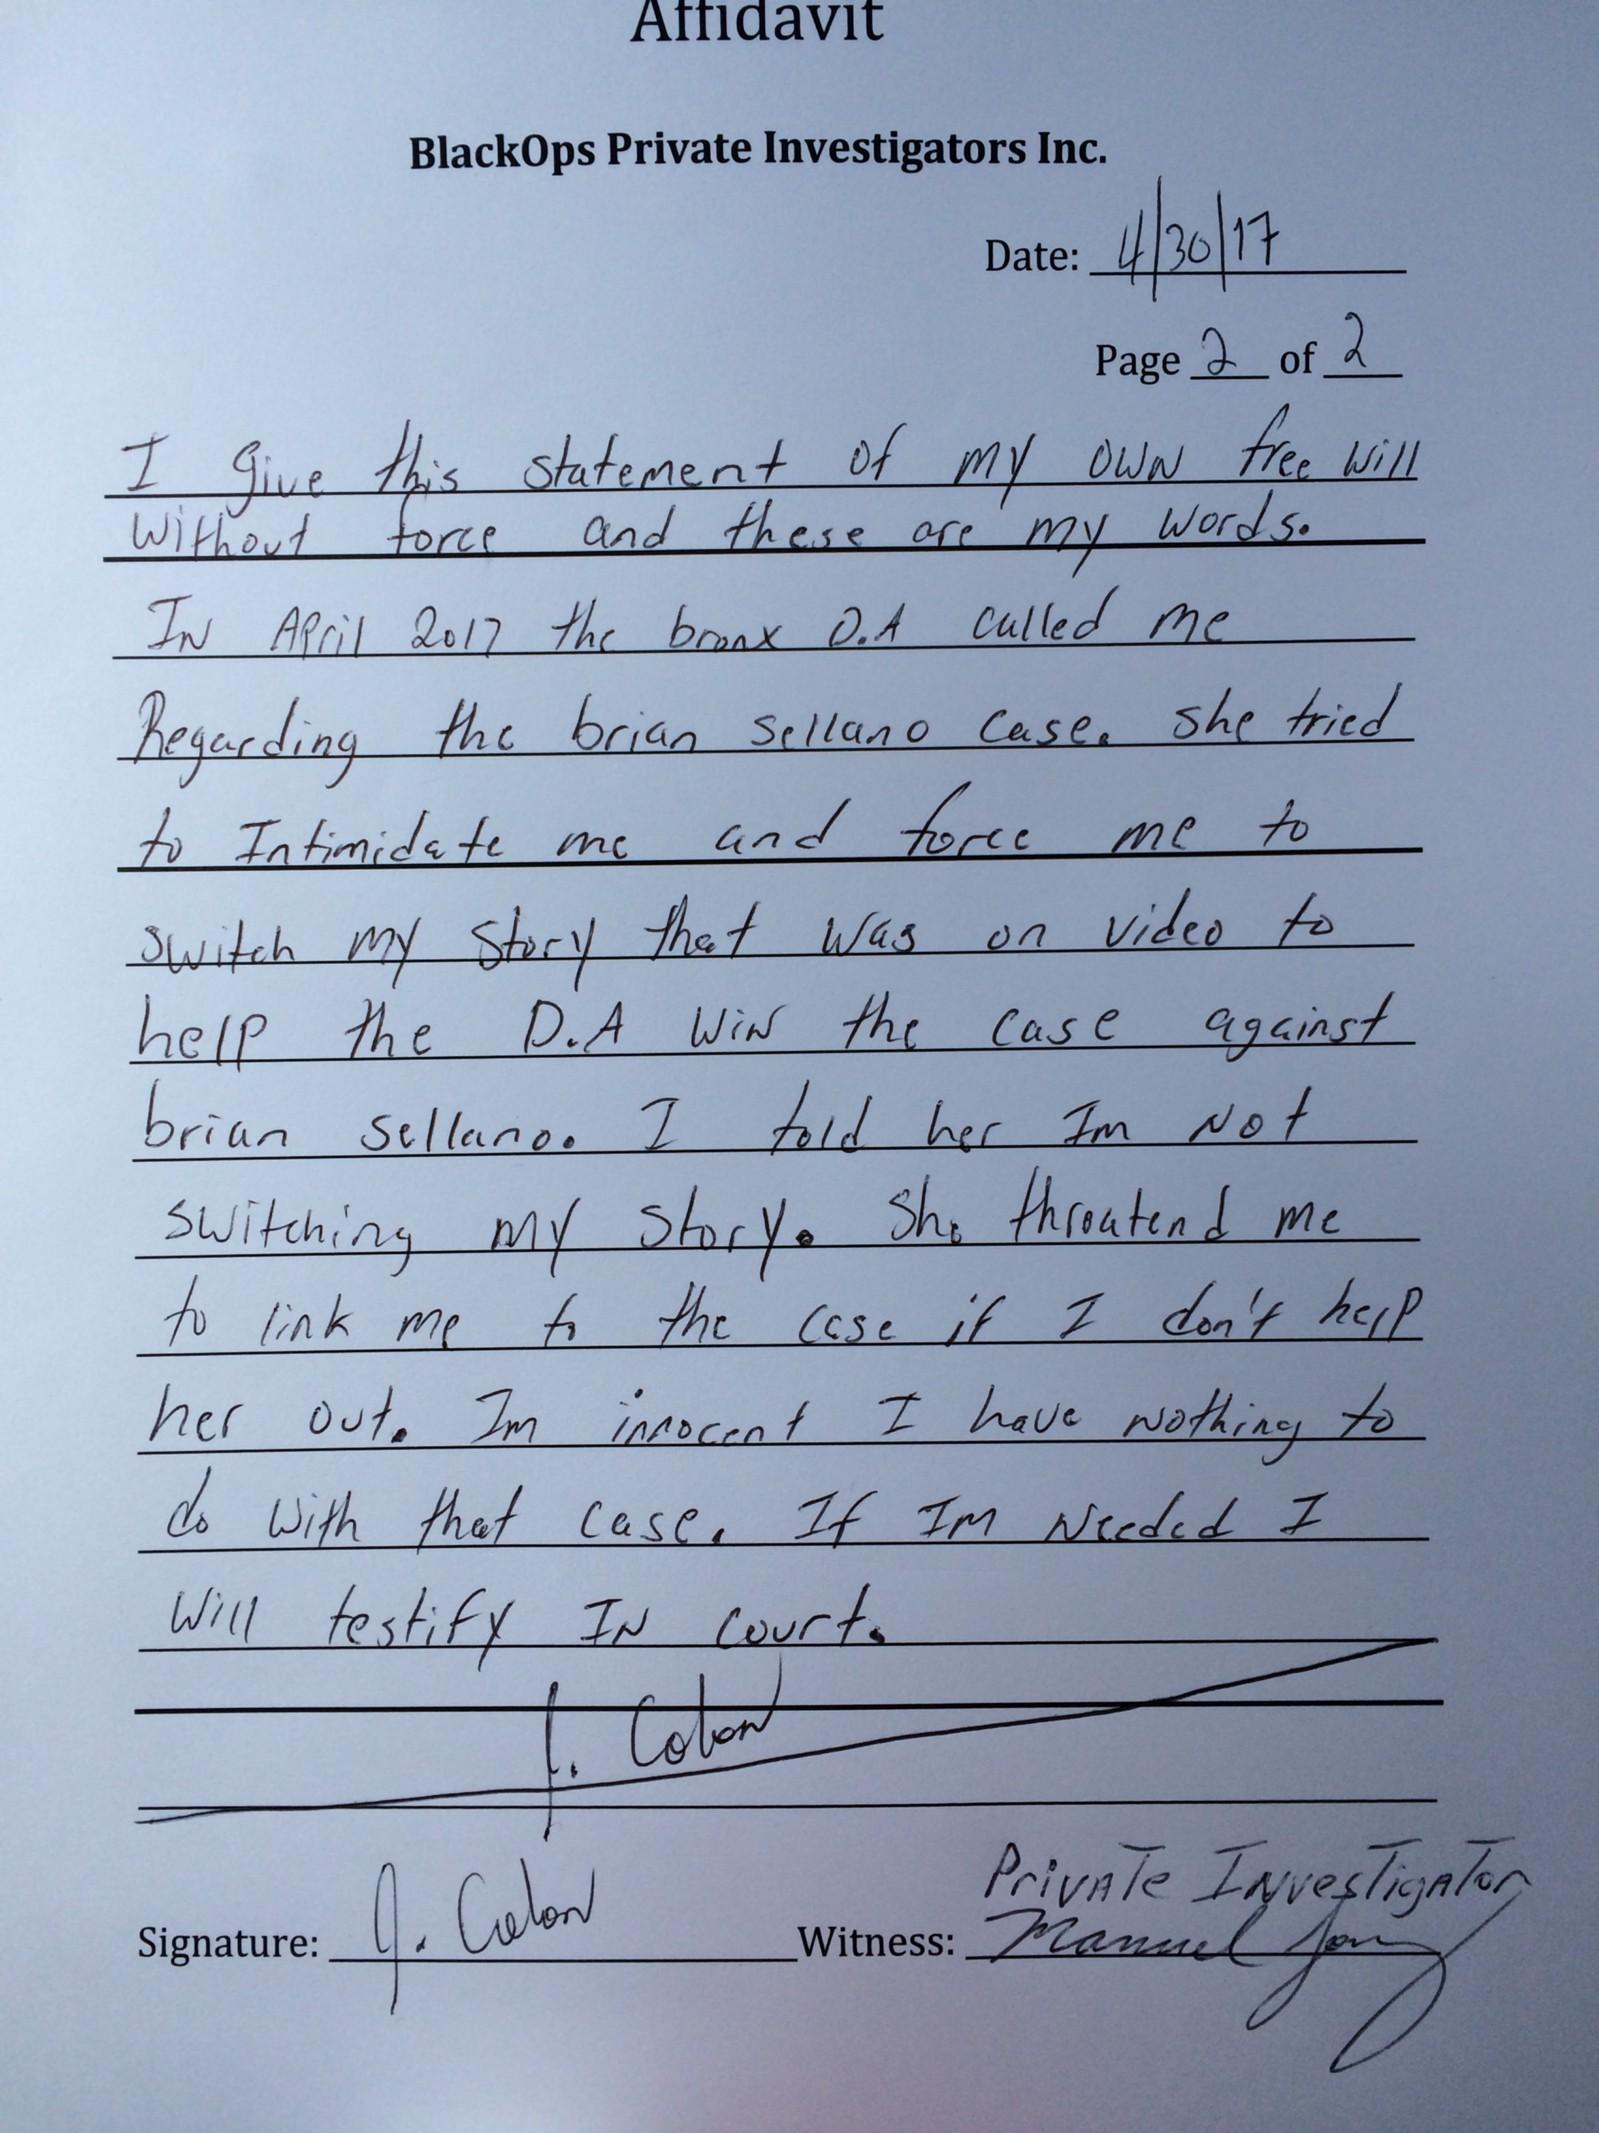 Affidavit
BlackOps Private Investigators Inc.
Date: 4/30/17
Page 2 of 2
I give this statement of my own free will
without force and these are my words.
In April 2017 the bronx D.A called me
Regarding the brian sellano case. She tried
to Intimidate me and force me to
switch my story that was on video to
help the D.A win the case against
brian sellano. I told her Im not
switching my story. She throatend me
to link me to the case if I don't help
her out. Im innocent I have nothing to
do with that case. If Im needed I
will testify In court.
J. Colon
Private Investigator
Signature: J. Colon Witness: Manuel